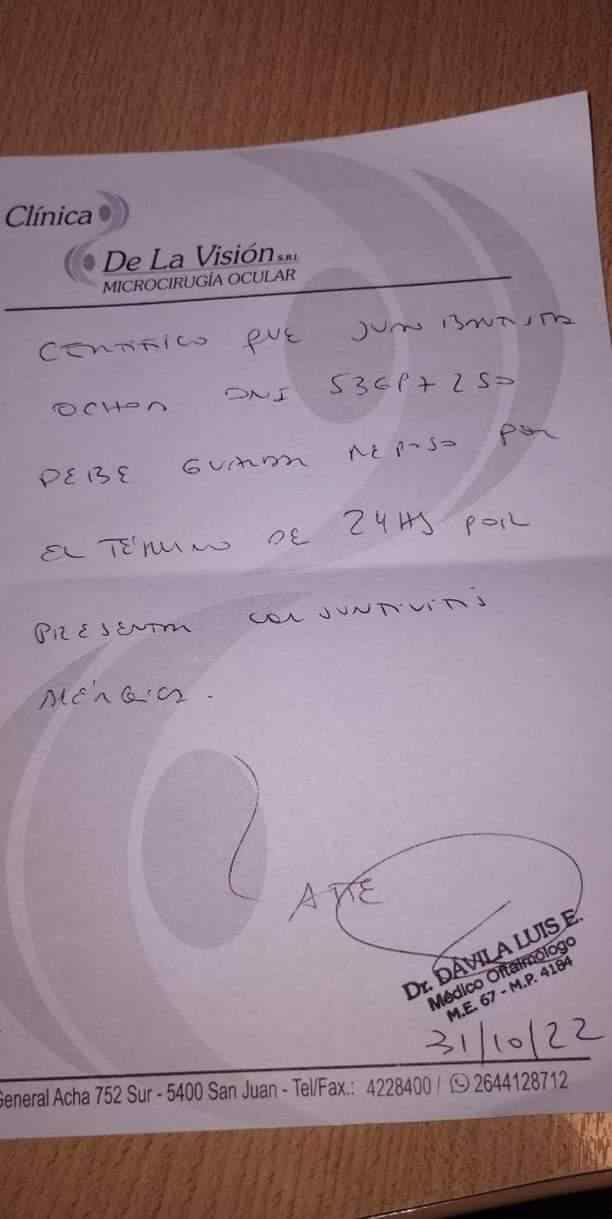 Clínica
De La Visión S.R.L
MICROCIRUGÍA OCULAR
CERTIFICO QUE JUAN BAUTISTA
OCHOA DNI
DEBE GUARDAR REPOSO POR
EL TÉRMINO DE 24HS POR
PRESENTAR CONJUNTIVITIS
ALÉRGICA.
ATTE
Dr. DAVILA LUIS E.
Médico Oftalmólogo
M.E. 67 - M.P. 4184
31/10/22
General Acha 752 Sur - 5400 San Juan - Tel/Fax.: 4228400 / 2644128712